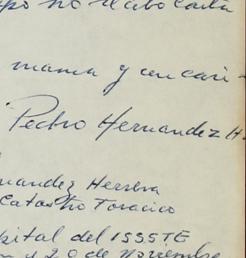 po no recibo carta
mama y un cari-
Pedro Hernandez H.
nandez Herrera
Catastro Toracico
pital del ISSSTE
20 de Noviembre